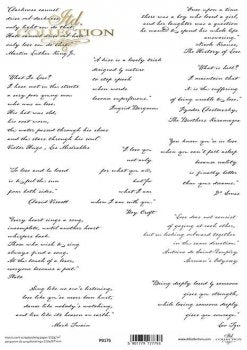 Darkness cannot
drive out darkness
only love can do that
Martin Luther King Jr.
ITD.
COLLECTION
Once upon a time
there was a boy who loved a girl
and her laughter was a question
he wanted to spend his whole life
answering
Nicole Krauss,
The History of Love
"A kiss is a lovely trick
designed by nature
to stop speech
when words
become superfluous."
Ingrid Bergman
"What Is Love?
I have met in the streets
a very poor young man
who was in love.
His hat was old,
his coat worn,
the water passed through his shoes
and the stars through his soul"
Victor Hugo, Les Misérables
"What is hell?
I maintain that
it is the suffering
of being unable to love."
Fyodor Dostoevsky,
The Brothers Karamazov
"I love you
not only
for what you are,
but for
what I am
when I am with you."
Roy Croft
You know you're in love
when you can't fall asleep
because reality
is finally better
than your dreams."
Dr. Seuss
"To love and be loved
is to feel the sun
from both sides."
David Viscott
"Every heart sings a song,
incomplete, until another heart
whispers back.
Those who wish to sing
always find a song.
At the touch of a lover,
everyone becomes a poet."
Plato
"Love does not consist
of gazing at each other,
but in looking outward together
in the same direction."
Antoine de Saint-Exupéry
Sing like no one's listening,
love like you've never been hurt,
dance like nobody's watching,
and live like its heaven on earth."
Mark Twain
"Being deeply loved by someone
gives you strength,
while loving someone deeply
gives you courage."
Lao Tzu
P0175
www.itdcollection.com
ITD.
COLLECTION